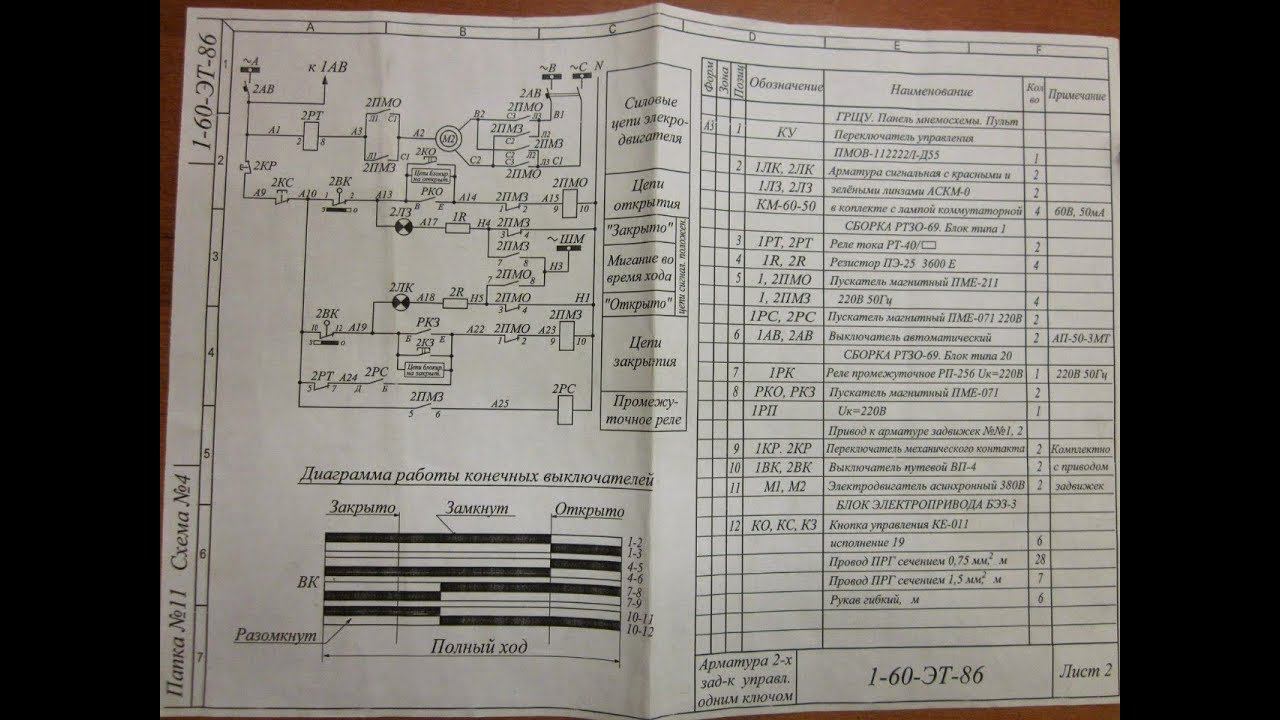 A B C D E F
1-60-ЭТ-86
Папка №11 Схема №4
1
2
3
4
5
6
7
~A
к 1АВ
~В
~С
N
2АВ
2АВ
2ПМО
B2
2ПМО
B1
А1
2РТ
2
8
А3
Л1
С1
А2
М2
С3
Л3
2ПМЗ
2ПМЗ
С2
Л3
С1
Л1
С1
2ПМЗ
2КО
2КР
Цепи блокир
на открыт.
А9
2КС
А10
2ВК
А13
РКО
В
Е
А14
2ПМЗ
1
2
А15
2ПМО
9
10
2ЛЗ
А17
1R
Н4
2ПМЗ
3
4
~ШМ
2ПМЗ
7
8
Н3
2ПМО
7
8
2ЛК
А18
2R
Н5
2ПМО
3
4
Н1
2ВК
10
12
А19
РКЗ
Б
Е
А22
2ПМО
1
2
А23
2ПМЗ
9
10
2КЗ
Цепи блокир
на закрыт.
2РТ
5
7
А24
2РС
Д
Б
2ПМЗ
5
6
А25
2РС
Силовые
цепи элекро-
двигателя
Цепи
открытия
"Закрыто"
Мигание во
время хода
"Открыто"
цепи сигнал. положен.
Цепи
закрытия
Промежу-
точное реле
Диаграмма работы конечных выключателей
Закрыто
Замкнут
Открыто
ВК
1-2
1-3
4-5
4-6
7-8
7-9
10-11
10-12
Разомкнут
Полный ход
Форм Зона Позиц Обозначение Наименование Кол во Примечание
ГРЩУ. Панель мнемосхемы. Пульт
А3 1 КУ Переключатель управления
ПМОВ-112222/I-Д55 1
2 1ЛК, 2ЛК Арматура сигнальная с красными и 2
1ЛЗ, 2ЛЗ зелёными линзами АСКМ-0 2
КМ-60-50 в коплекте с лампой коммутаторной 4 60В, 50мА
СБОРКА РТЗО-69. Блок типа 1
3 1РТ, 2РТ Реле тока РТ-40/ 2
4 1R, 2R Резистор ПЭ-25 3600 Е 4
5 1, 2ПМО Пускатель магнитный ПМЕ-211
1, 2ПМЗ 220В 50Гц 4
1РС, 2РС Пускатель магнитный ПМЕ-071 220В 2
6 1АВ, 2АВ Выключатель автоматический 2 АП-50-3МТ
СБОРКА РТЗО-69. Блок типа 20
7 1РК Реле промежуточное РП-256 Uк=220В 1 220В 50Гц
8 РКО, РКЗ Пускатель магнитный ПМЕ-071 2
1РП Uк=220В 1
Привод к арматуре задвижек №№1, 2
9 1КР. 2КР Переключатель механического контакта 2 Комплектно
10 1ВК, 2ВК Выключатель путевой ВП-4 2 с приводом
11 М1, М2 Электродвигатель асинхронный 380В 2 задвижек
БЛОК ЭЛЕКТРОПРИВОДА БЭЗ-3
12 КО, КС, КЗ Кнопка управления КЕ-011
исполнение 19 6
Провод ПРГ сечением 0,75 мм,² м 28
Провод ПРГ сечением 1,5 мм,² м 7
Рукав гибкий, м 6
Арматура 2-х
зад-к управл.
одним ключом
1-60-ЭТ-86
Лист 2